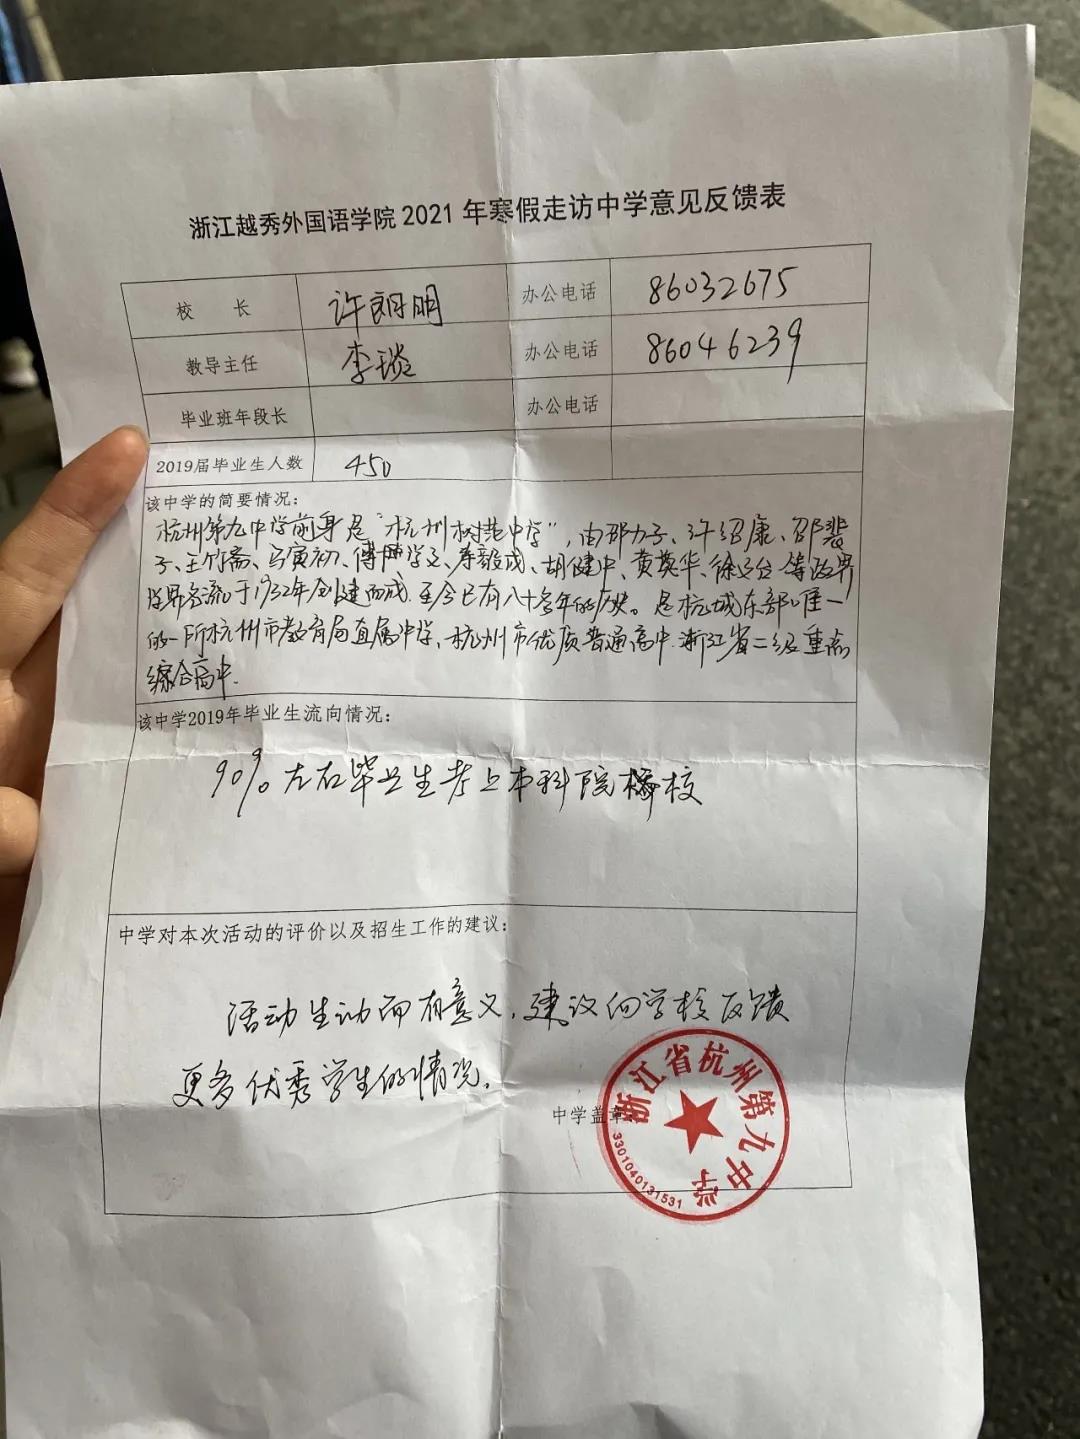 浙江越秀外国语学院 2021 年寒假走访中学意见反馈表
校 长 许朗明 办公电话 86032675
教导主任 李璇 办公电话 86046239
毕业班年段长 办公电话
2019届毕业生人数 450
该中学的简要情况：
杭州第九中学前身是“杭州树范中学”，由邵力子、许绍康、邵裴
子、王竹斋、马寅初、傅 学文、寿毅成、胡健中、黄英华、徐 等政界
学界名流于1932年创建而成.至今已有八十多年的历史。是杭城东部唯一
的一所杭州市教育局直属中学、杭州市优质普通高中.浙江省二级重点
综合高中.
该中学2019年毕业生流向情况：
90%左右毕业生考上本科院校
中学对本次活动的评价以及招生工作的建议：
活动生动而有意义.建议向学校反馈
更多优秀学生的情况.
中学盖章：
浙江省杭州第九中学
3301040131531